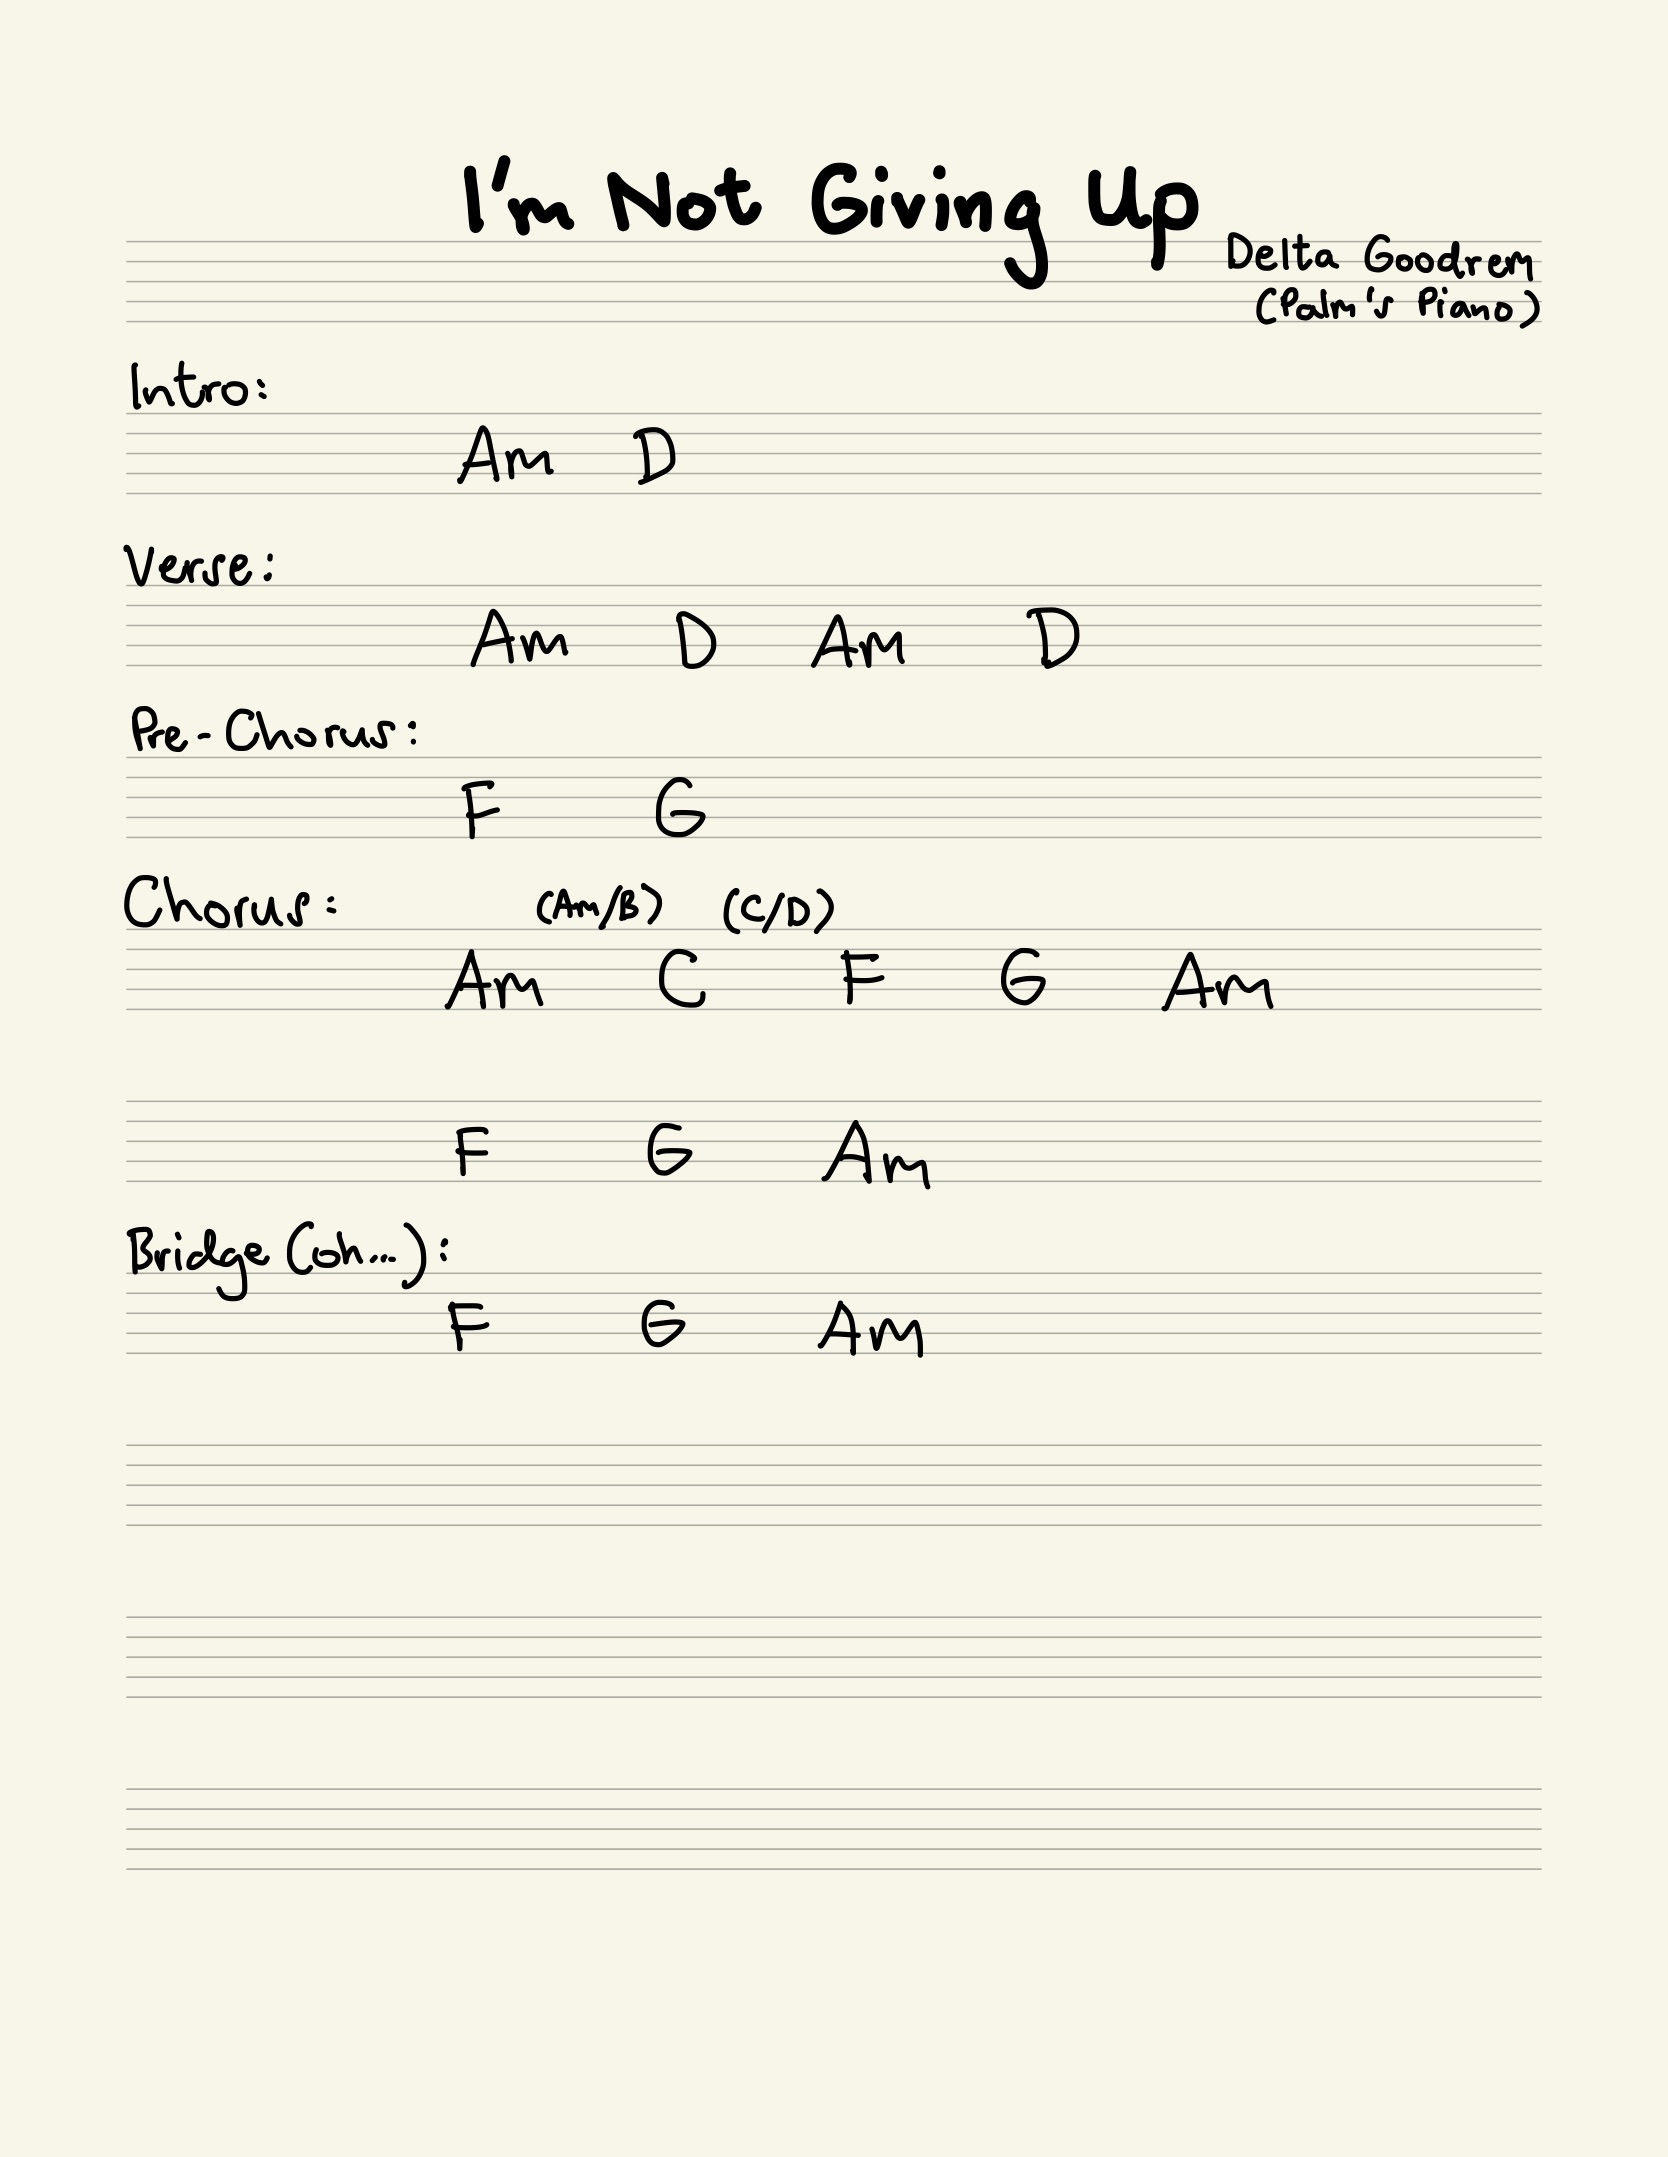 I'm Not Giving Up
Delta Goodrem
(Palm's Piano)
Intro:
Am D
Verse:
Am D Am D
Pre-Chorus:
F G
Chorus: (Am/B) (C/D)
Am C F G Am
F G Am
Bridge (oh...):
F G Am